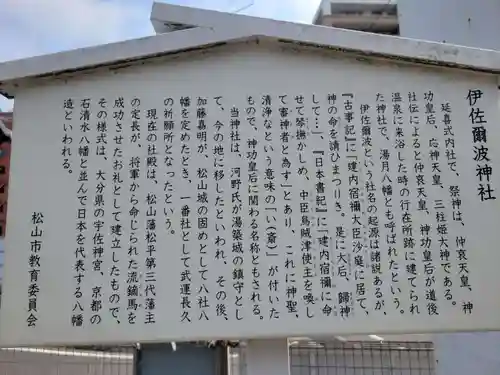 伊佐爾波神社
延喜式内社で、祭神は、仲哀天皇、神
功皇后、応神天皇、三柱姫大神である。
社伝によると仲哀天皇、神功皇后が道後
温泉に来浴した時の行在所跡に建てられ
た神社で、湯月八幡とも呼ばれたという。
伊佐爾波という社名の起源は諸説あるが、
『古事記』に「建内宿禰大臣沙庭に居て、
神の命を請ひまつりき。是に大后、歸神
して…」、『日本書記』に「建内宿禰に命
せて琴撫かしめ、中臣烏賊津使主を喚し
て審神者と為す」とあり、これに神聖、
清浄などという意味の「い(斎)」が付いた
もので、神功皇后に関わる名称ともされる。
当神社は、河野氏が湯築城の鎮守とし
て、今の地に移したといわれ、その後、
加藤嘉明が、松山城の固めとして八社八
幡を定めたとき、一番社として武運長久
の祈願所となったという。
現在の社殿は、松山藩松平第三代藩主
の定長が、将軍から命じられた流鏑馬を
成功させたお礼として建立したもので、
その様式は、大分県の宇佐神宮、京都の
石清水八幡と並んで日本を代表する八幡
造といわれる。
松山市教育委員会